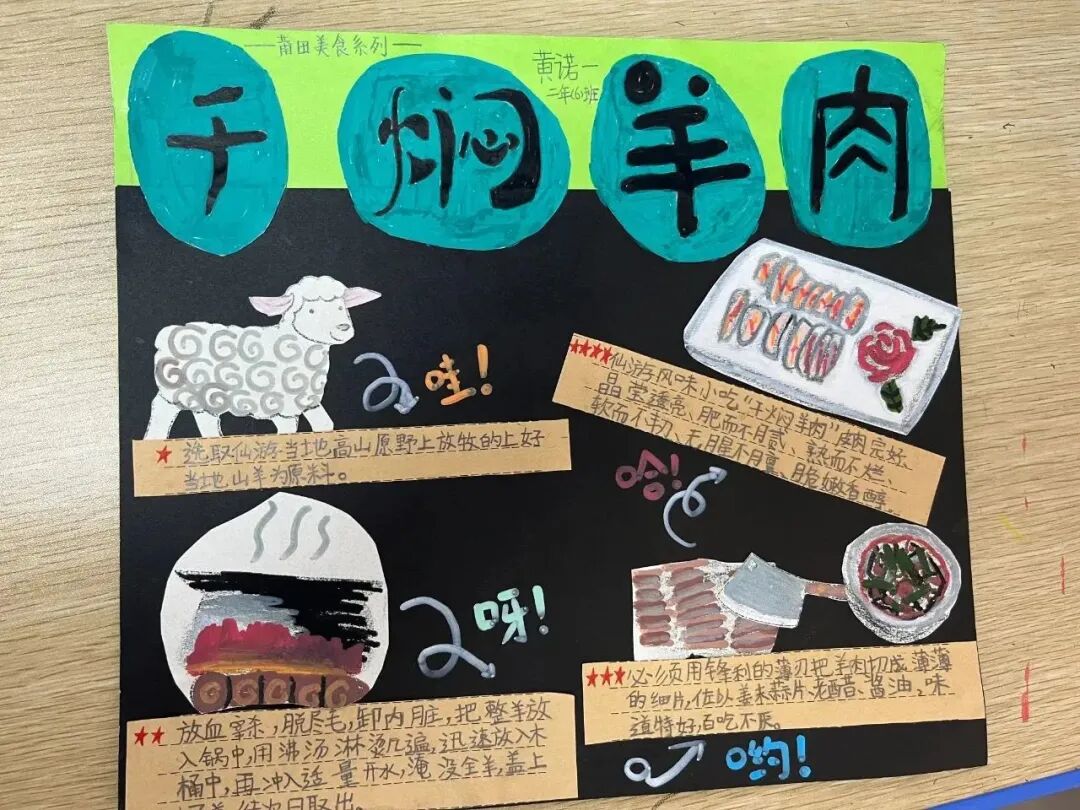 —莆田美食系列—
黄诺一
二年(6)班
干焖羊肉
哇!
★选取仙游当地高山原野上放牧的上好
当地山羊为原料。
★★★★仙游风味小吃“干焖羊肉”皮肉完好、
晶莹透亮、肥而不腻、熟而不烂、
软而不韧、无腥不膻、脆嫩香醇。
哈!
呀!
★★放血宰杀,脱尽毛,卸内脏,把整羊放
入锅中,用沸汤淋烫几遍,迅速放入木
桶中,再冲入适量开水,淹没全羊,盖上
次日取出。
★★★必须用锋利的薄刃把羊肉切成薄薄
的细片,佐以姜末蒜片、老醋、酱油,味
道特好,百吃不厌。
哟!